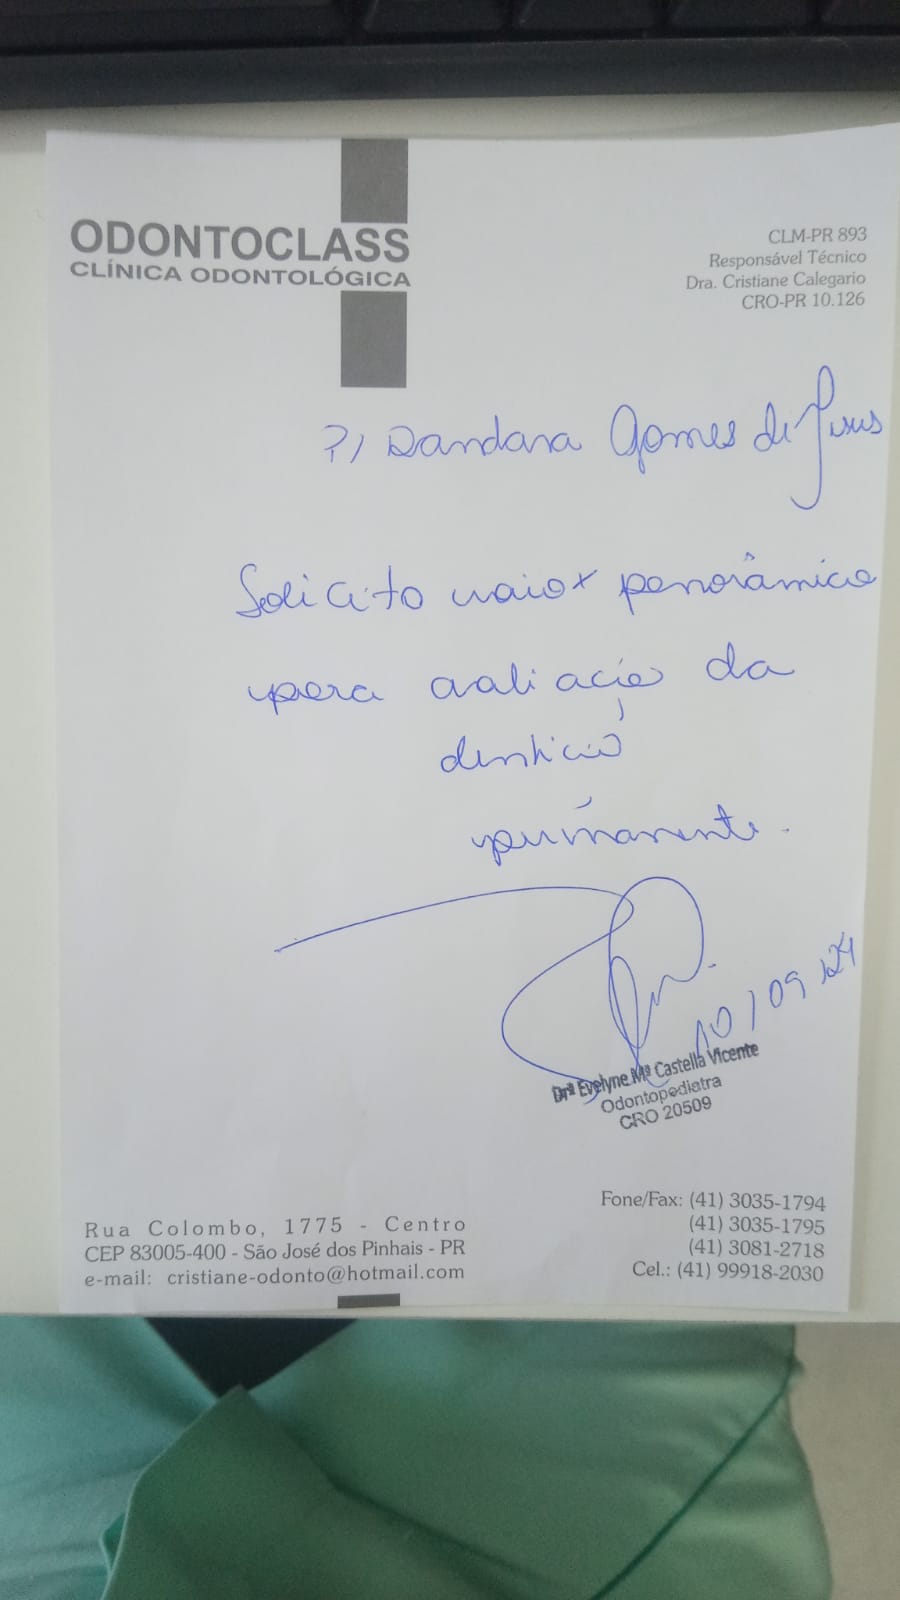 ODONTOCLASS
CLÍNICA ODONTOLÓGICA
CLM-PR 893
Responsável Técnico
Dra. Cristiane Calegario
CRO-PR 10.126
P/ Dandara Gomes de Jesus
Solicito raio x panorâmica
para avaliação da
dentição
permanente.
10/09/24
Drª Evelyne Mª Castella Vicente
Odontopediatra
CRO 20509
Rua Colombo, 1775 - Centro
CEP 83005-400 - São José dos Pinhais - PR
e-mail: cristiane-odonto@hotmail.com
Fone/Fax: (41) 3035-1794
(41) 3035-1795
(41) 3081-2718
Cel.: (41) 99918-2030